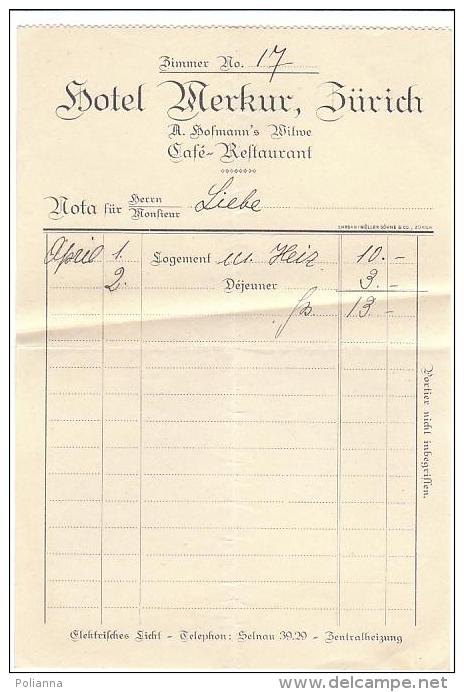 Zimmer No. 17
Hotel Merkur, Zürich
A. Hofmann's Witwe
Café-Restaurant
Nota für Herrn Liebe
Monsieur
EHRSAM-MÜLLER SÖHNE & CO., ZÜRICH
April 1. Logement m. Heiz 10.-
2. Déjeuner 3.-
frs. 13.-
Portier nicht inbegriffen.
Elektrisches Licht - Telephon: Selnau 39.29 - Zentralheizung
Polianna
delcampe.net